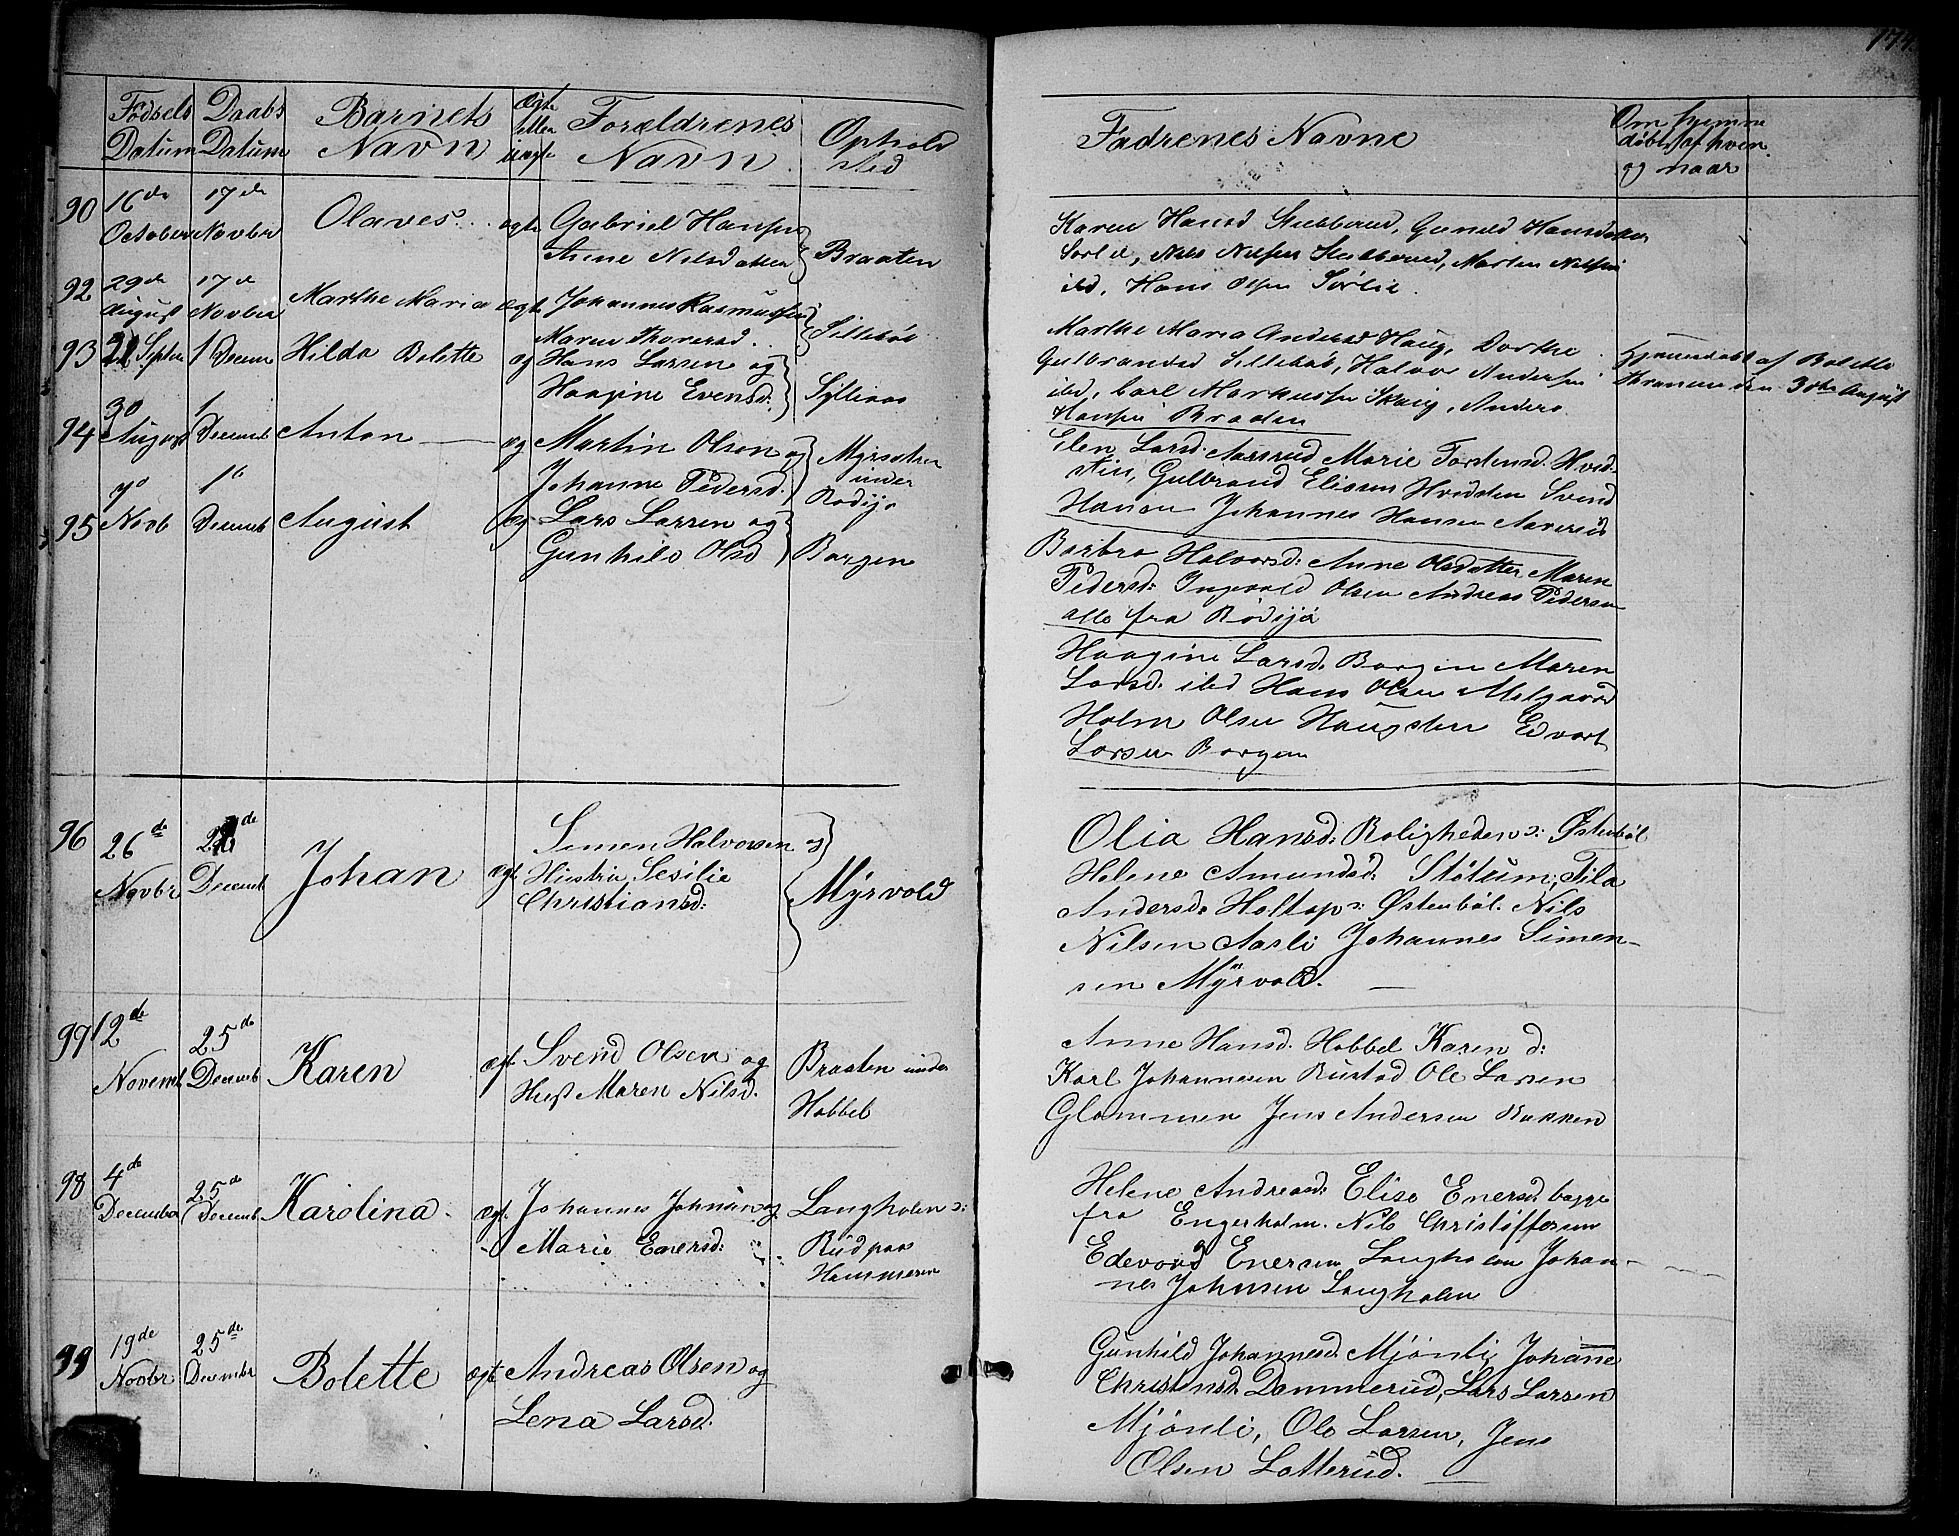 174
Fødsels Datum
Daabs Datum
Barnets Navn
Ægte eller uægte
Forældrenes Navn
Opholdsted
Fadrenes Navne
Om hjemme døbt, af hvem og naar
90 16de October 17de Novbr Olaves ægte Gabriel Hansen
Anne Nilsdatter Braaten
Karen Hansd Stubberud, Gunild Hansdatter
Sørlie, Nils Nilsen Stubberud, Morten Nilsen
ibd, Hans Olsen Sørlie
92 29de August 17de Novber Marthe Maria ægte Johannes Rasmussen
Maren Thorersd. Sillebøl
Marthe Maria Andersd Haug, Dorthe
Gulbrandsd Sillebøl, Halvor Andersen
ibd, Carl Markussen Skaug, Anders
Hansen Braaten
Hjemmedøbt af Bolette
den 30te August
93 21 Septem 1 Decem Hilda Bolette æg Hans Larsen og
Haagine Evensd.
Elen Larsd. Aarerud Marie Torstensd. Hvid-
sten, Gulbrand Eliasen Hvidsten Svend
Hansen Johannes Hansen Aarerud
94 30 August 1 Decemb Anton æg Martin Olsen og
Johanne Pedersd. Myrsetren
under
Barbro Halvorsd: Anne Olsdatter Maren
Pedersd: Ingvald Olsen Andreas Pedersen
alle fra Rødijø
95 7de Novb 1te Decemb August æg Lars Larsen og
Gunhild Olsd Borgen
Haagine Larsd. Borgen Maren
Larsd. ibd Hans Olsen Melgaard
Holm Olsen Haugsten Edvart
Larsen Borgen
96 26de Novbr Decemb Johan ægt. Simen Halvorsen og
Hustru Sesilie
Christiansd: Myrvold
Olia Hansd: Boligheden ɔ: Østenbøl
Helene Amundsd. Støtum, Tila
Andersd: Holtop ɔ: Østenbøl. Nils
Nilsen Aasli Johannes Simen-
sen Myrvold.
99 12de Novemb 25de Decemb Karen ægt Svend Olsen og
Hust Maren Nilsd. Braaten under
Habbel
Anne Hansd. Habbel Karen d:
Karl Johannesen Rustad Ole Larsen
Glommen Jens Andersen Bakken
98 4de December 25de Decemb. Karolina ægt. Johannes Johnsen og
Marie Enersd: Langholen ɔ:
Rud paa
Hammeren
Helene Andreasd: Elise Enersd. begge
fra Engerholm. Nils Christoffersen
Edevard Enersen Langholen Johan-
nes Johnsen Langholen
99 19de Novbr 25de Decembr Bolette ægt. Andreas Olsen og
Lena Larsd.
Gunhild Johannesd. Mjønli, Johanne
Christensd. Dammerud, Lars Larsen
Mjønli, Ole Larsen, Jens
Olsen Latterud.